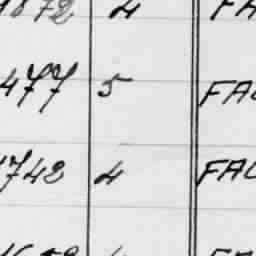 1872 4 FA
477 5 FAC
1742 4 FAC